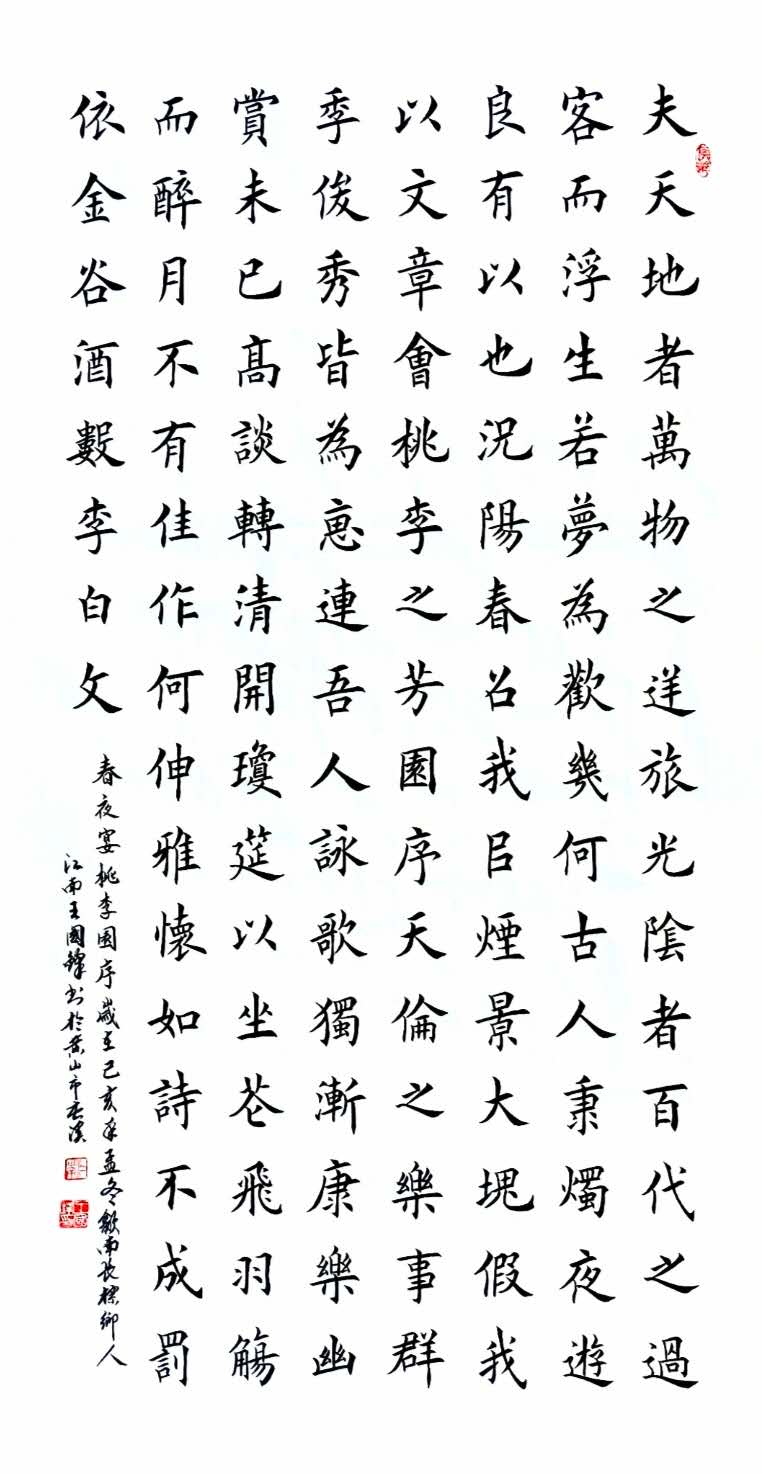 夫天地者萬物之逆旅光陰者百代之過
客而浮生若夢為歡幾何古人秉燭夜遊
良有以也況陽春召我㠯煙景大塊假我
以文章會桃李之芳園序天倫之樂事群
季俊秀皆為恵連吾人詠歌獨漸康樂幽
賞未已髙談轉清開瓊筵以坐花飛羽觴
而醉月不有佳作何伸雅懷如詩不成罰
依金谷酒數李白文
春夜宴桃李園序歲在己亥年孟冬歙南長標鄉人
江南王國書於黃山市屯溪